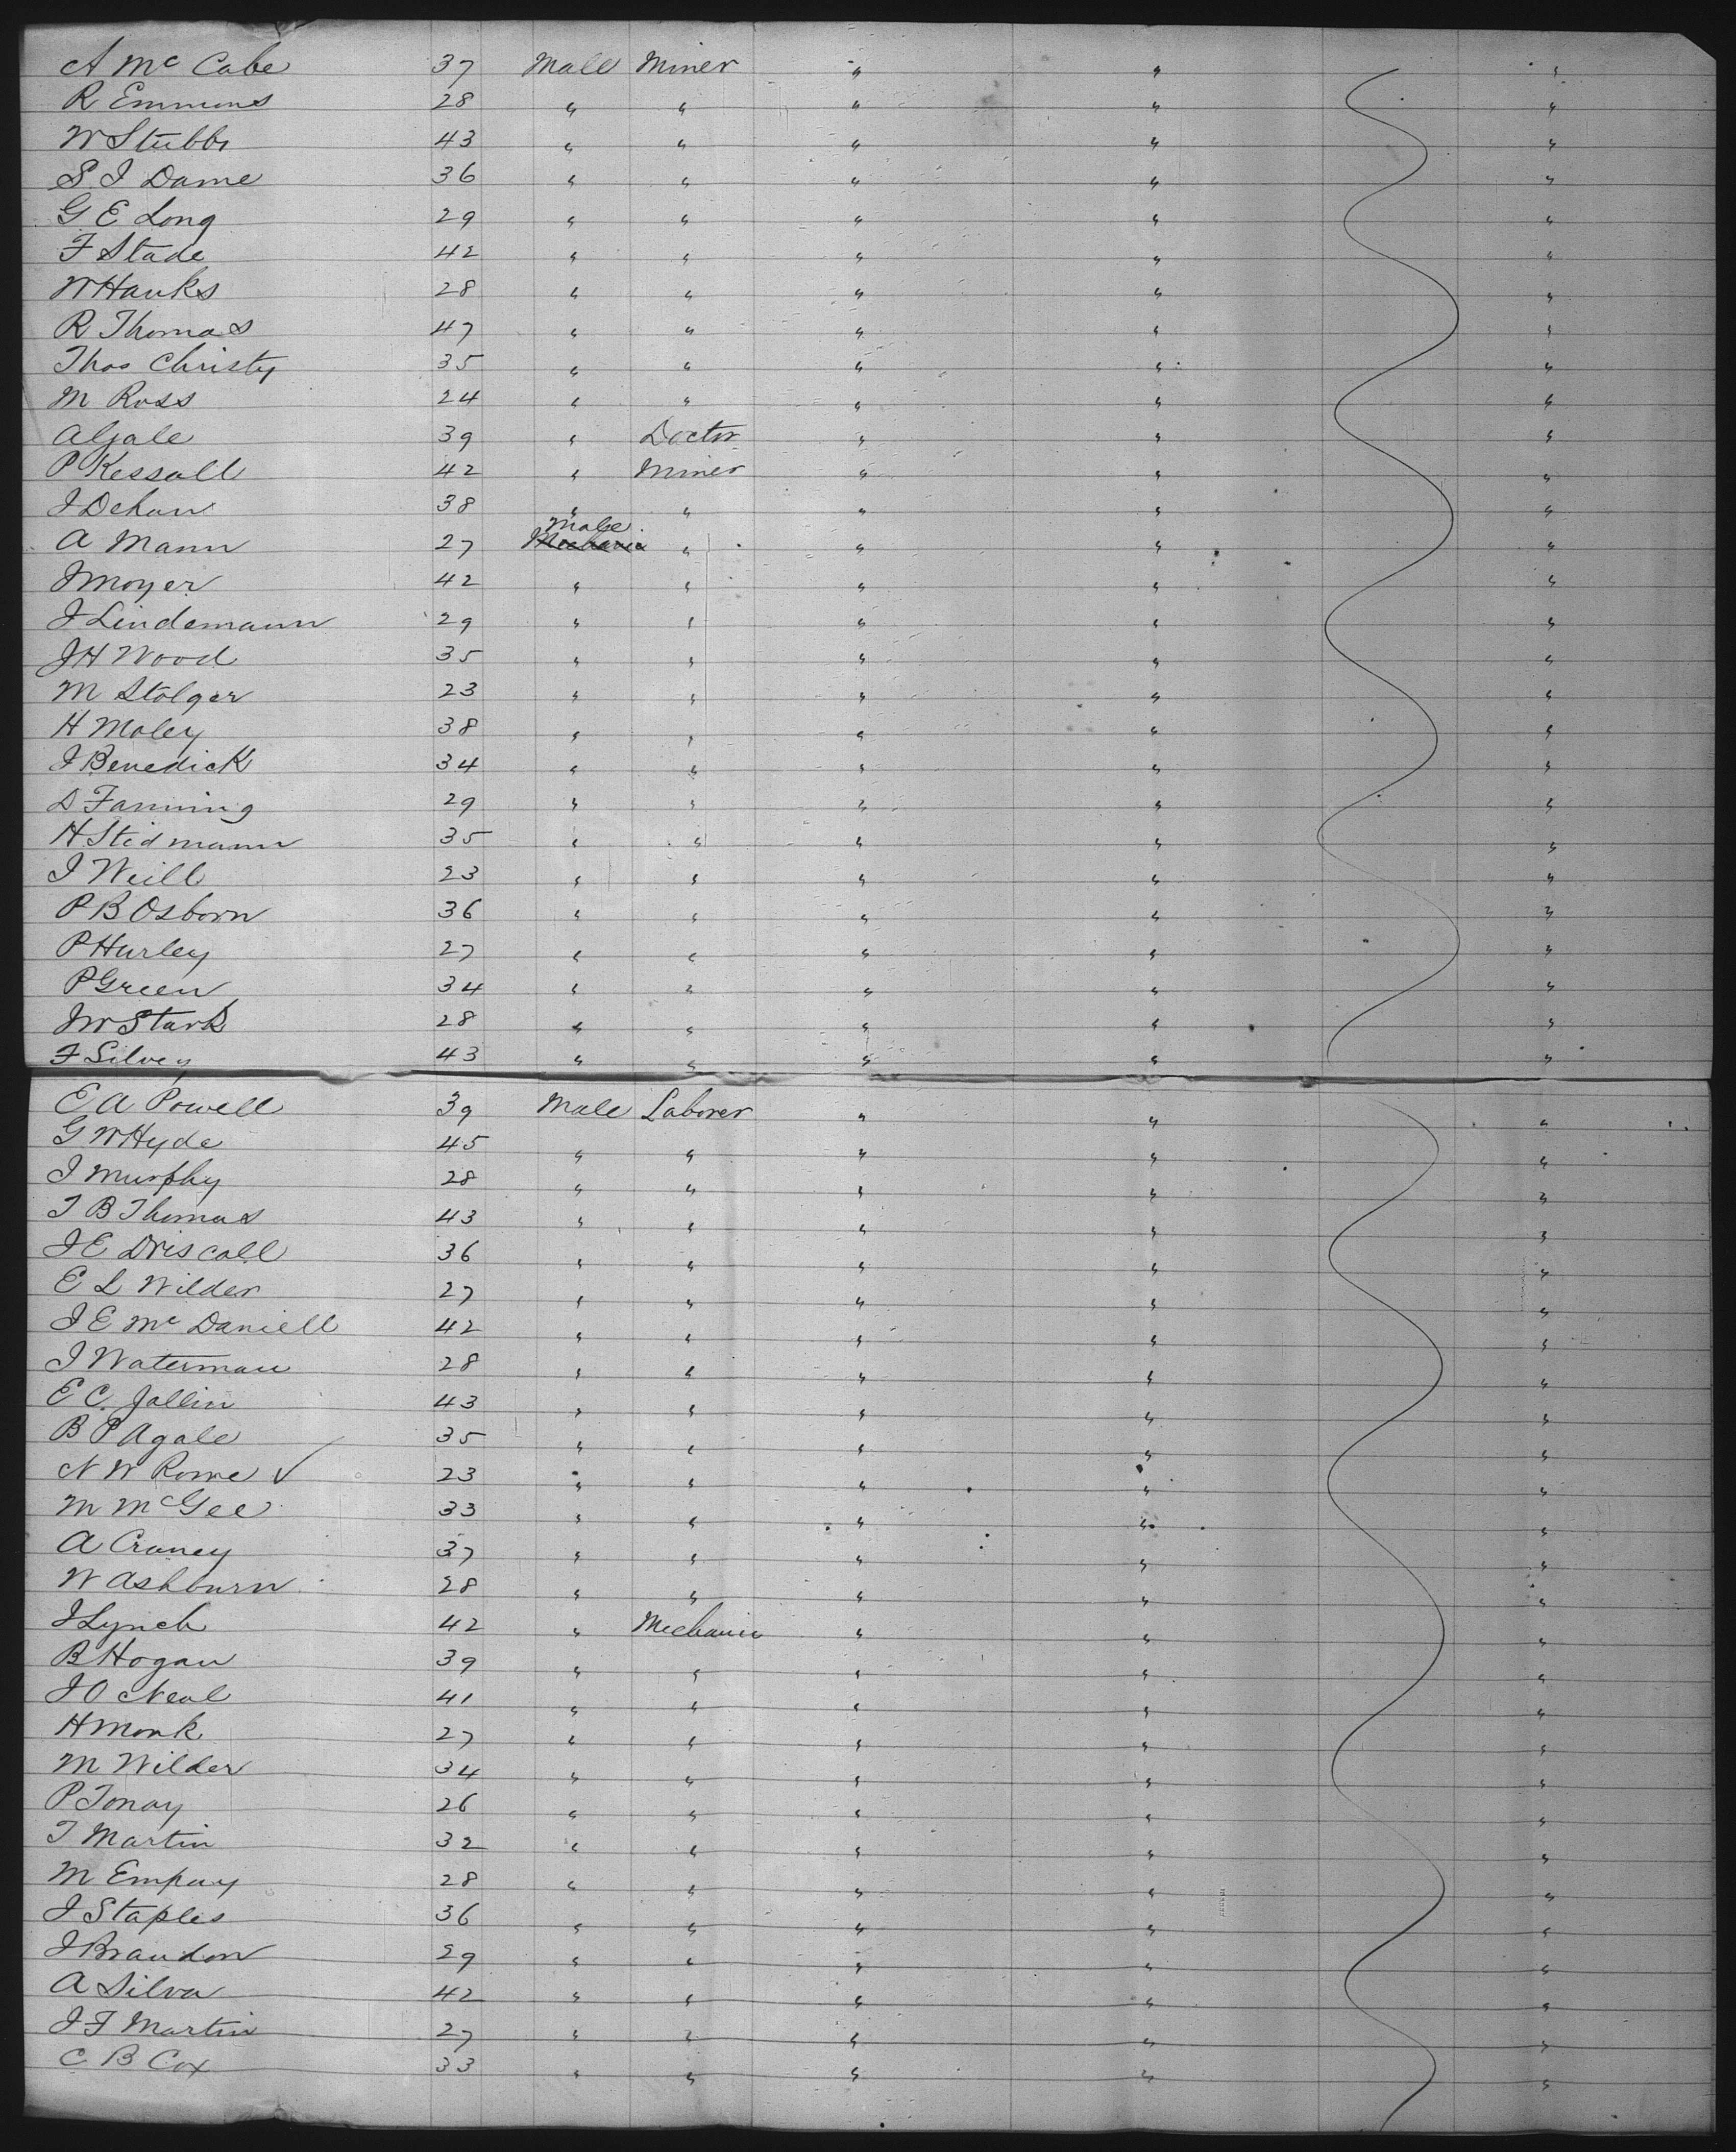 A Mc Cabe 37 Male Miner " " "
R Emmons 28 " " " " "
W Stubbs 43 " " " " "
S. I Dame 36 " " " " "
G E Long 29 " " " " "
F Stade 42 " " " " "
W Hanks 28 " " " " "
R Thomas 47 " " " " "
Thos Christy 35 " " " " "
M Ross 24 " " " " "
A Gale 39 " Doctor " " "
P Kessall 42 " Miner " " "
J Dehan 38 " " " " "
A Mann 27 Male Mechanic " " " "
J Moyer 42 " " " " "
J Lindemann 29 " " " " "
J H Wood 35 " " " " "
M Stolger 23 " " " " "
H Maley 38 " " " " "
J Benedick 34 " " " " "
D Fanning 29 " " " " "
H Stidmann 35 " " " " "
J Weill 23 " " " " "
P B Osborn 36 " " " " "
P Hurley 27 " " " " "
P Green 34 " " " " "
J W Stark 28 " " " " "
F Silvey 43 " " " " "
E A Powell 39 Male Laborer " " "
G W Hyde 45 " " " " "
J Murphy 28 " " " " "
T B Thomas 43 " " " " "
J E Driscoll 36 " " " " "
E L Wilder 27 " " " " "
J E Mc Daniell 42 " " " " "
J Waterman 28 " " " " "
E C. Jallin 43 " " " " "
B P Agale 35 " " " " "
N W Rowe ✓ 23 " " " " "
M McGee 33 " " " " "
A Craney 37 " " " " "
W Ashburn 28 " " " " "
J Lynch 42 " Mechanic " " "
B Hogan 39 " " " " "
J O Neal 41 " " " " "
H Monk 27 " " " " "
M Wilder 34 " " " " "
P Tonay 26 " " " " "
T Martin 32 " " " " "
M Empay 28 " " " " "
J Staples 36 " " " " "
J Brandon 29 " " " " "
A Silva 42 " " " " "
J F Martin 27 " " " " "
C B Cox 33 " " " " "